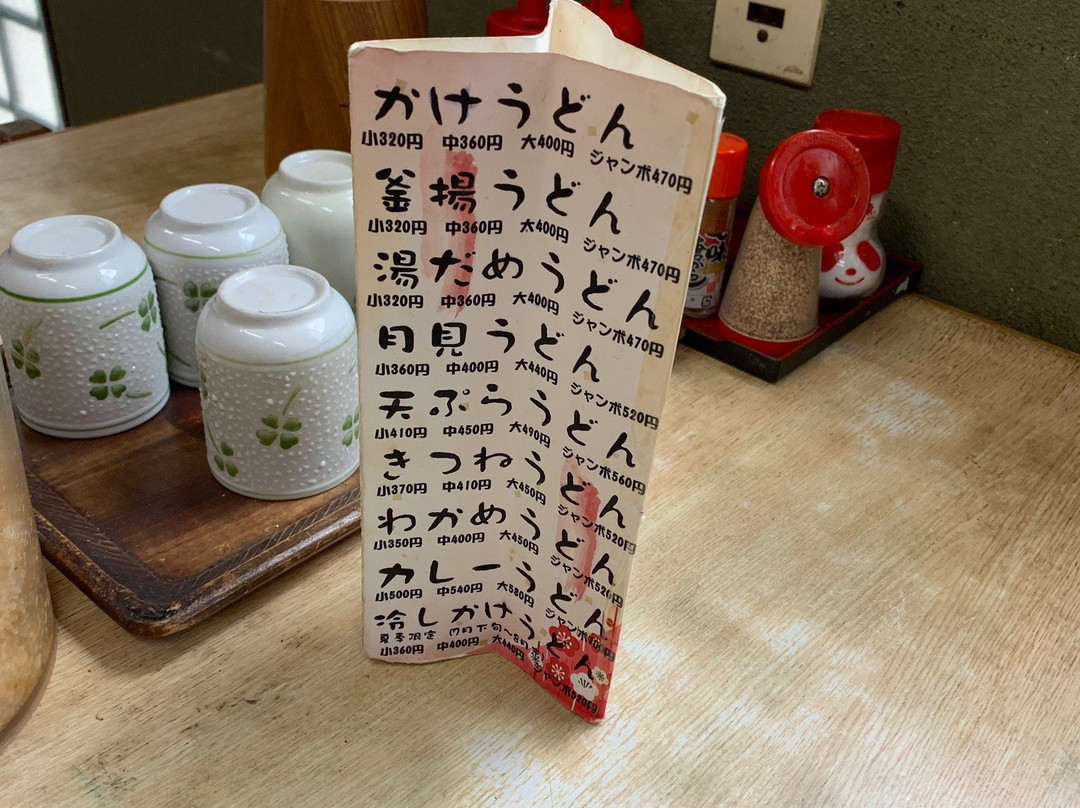 かけうどん
小320円 中360円 大400円 ジャンボ470円
釜揚うどん
小320円 中360円 大400円 ジャンボ470円
湯だめうどん
小320円 中360円 大400円 ジャンボ470円
月見うどん
小360円 中400円 大440円 ジャンボ520円
天ぷらうどん
小410円 中450円 大490円 ジャンボ560円
きつねうどん
小370円 中410円 大450円 ジャンボ520円
わかめうどん
小350円 中400円 大450円 ジャンボ520円
カレーうどん
小500円 中540円 大580円 ジャンボ
冷しかけうどん
夏季限定 (7月下旬〜
小360円 中400円 大440円 ジャンボ520円
味